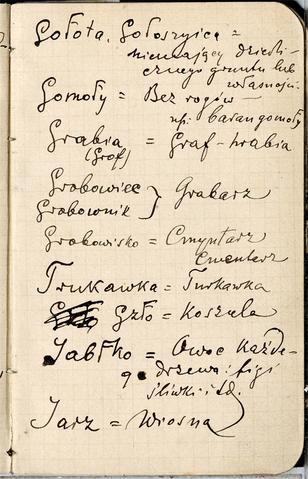 Gołota, Gołoszyice =
niemający dziedzi
cznego gruntu lub
własności.
Gomoły = Bez rogów —
np: baran gomoły
Grabia = Graf - hrabia
(Grof)
Grobowiec } Grabarz
Grobownik
Grobowisko = Cmyntarz
Cmentarz
Trukawka = Turkawka
Gzło = Koszula
Jabłko = Owoc każde-
go drzewa: figi
śliwki i td.
Jarz = Wiosna